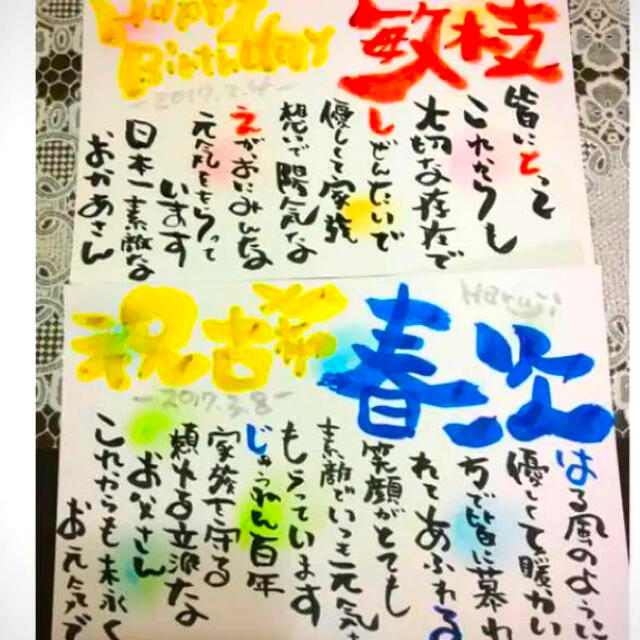 Happy
Birthday
敏枝
-2017.2.4-
皆にとって
これからもし
大切な存在で
しぜんたいで
優しくて家族
想いで陽気な
えがおにみんな
元気をもらって
います
日本一素敵な
おかあさん
祝古希
春次
Haruji
-2017.3.8-
はる風のように
優しくて暖かい
方で皆に慕わ
れてあふれる
笑顔がとても
素敵でいつも元気を
もらっています
じゅみょう百年
家族を守る
頼れる立派な
お父さん
これからも末永く
お元気で